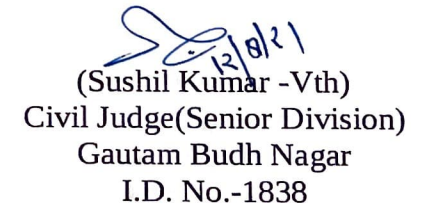 12/8/21
(Sushil Kumar -Vth)
Civil Judge(Senior Division)
Gautam Budh Nagar
I.D. No.-1838